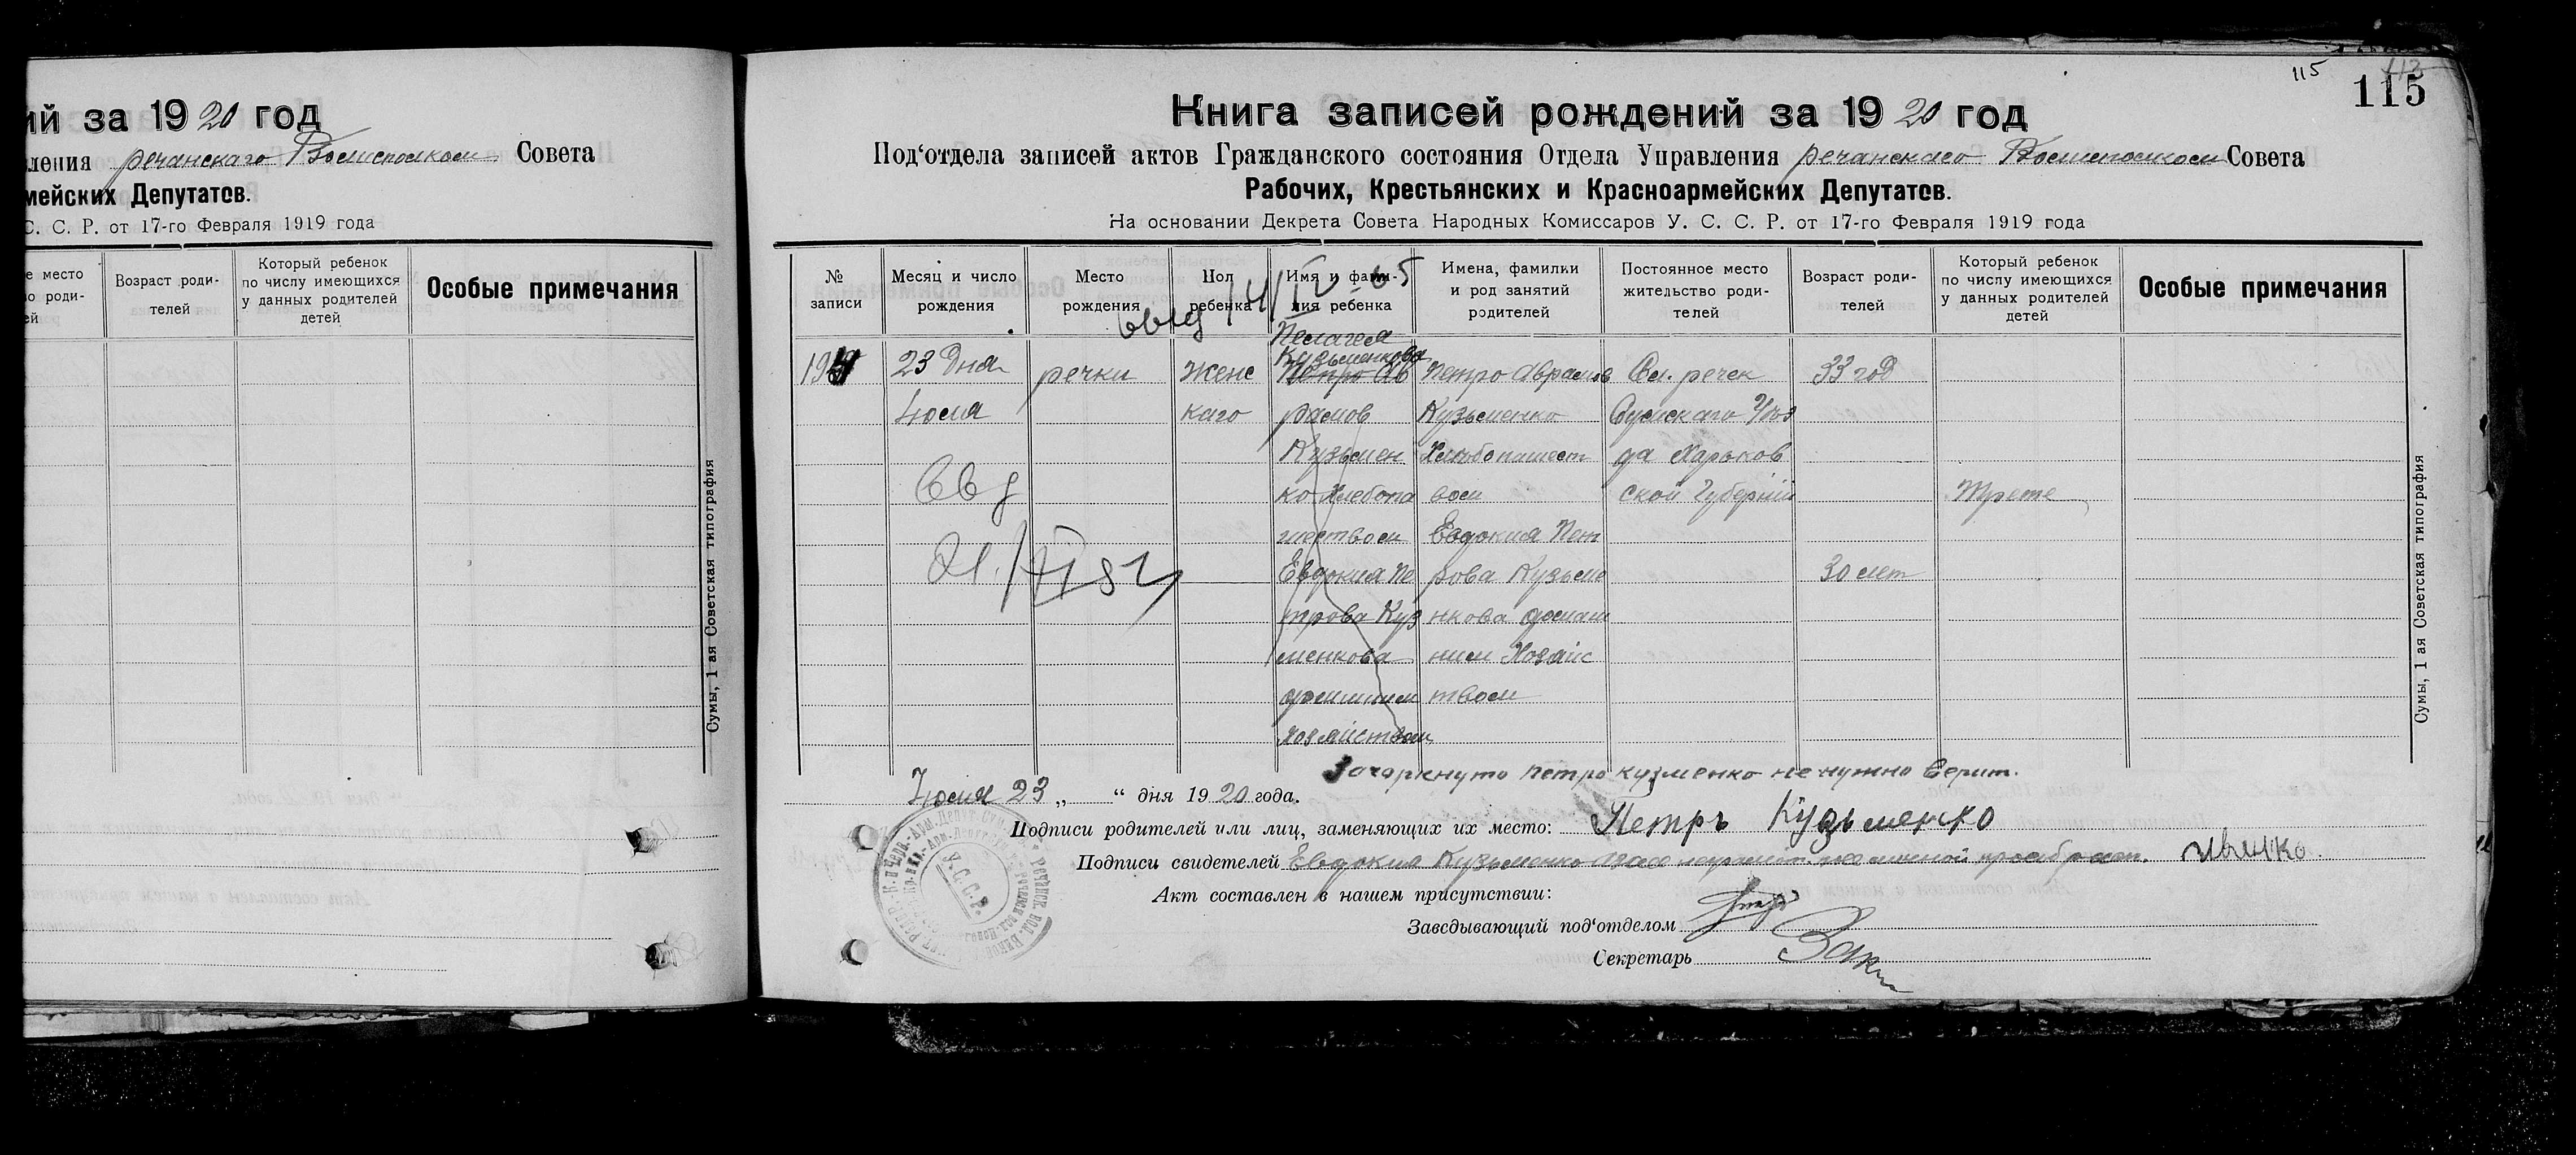 ий за 1920 год
вления речанскаго Волисполком Совета
мейских Депутатов.
С. С. Р. от 17-го Февраля 1919 года
е место
о роди-
ей
Возраст роди-
телей
Который ребенок
по числу имеющихся
у данных родителей
детей
Особые примечания
Сумы, 1 ая Советская типография
115
113
115
Книга записей рождений за 1920 год
Под‘отдела записей актов Гражданского состояния Отдела Управления речанскаго Волисполком Совета
Рабочих, Крестьянских и Красноармейских Депутатов.
На основании Декрета Совета Народных Комиссаров У. С. С. Р. от 17-го Февраля 1919 года
№
записи
Месяц и число
рождения
Место
рождения
Пол
ребенка
Имя и фами-
лия ребенка
Имена, фамилки
и род занятий
родителей
Постоянное место
жительство роди-
телей
Возраст роди-
телей
Который ребенок
по числу имеющихся
у данных родителей
детей
Особые примечания
23 Дня
Июля
речки
Женс
каго
Пелагея
Кузьменкова
Петро Ав
рамов
Кузьмен
ко Хлебопа
шеством
Евдокия Пе
трова Куз
менкова
домашним
хозяйством
Петро Аврамов
Кузьменко
Хлебопашест
вом
Евдокия Пет
рова Кузьме
нкова домаш
ним Хозяйс
твом
Сл. речек
Сумскаго Уез
да Харьков
ской Губернии
33 год
30 лет
Трете
Зачоркнуто петро кузменко не нужно верит.
Июля 23 „ “ дня 1920 года.
Подписи родителей или лиц, заменяющих их место: Петръ Кузьменко
Подписи свидетелей Евдокия Кузьменко
Акт составлен в нашем присутствии:
Заведывающий под‘отделом
Секретарь
У.С.С.Р.
Сумы, 1 ая Советская типография